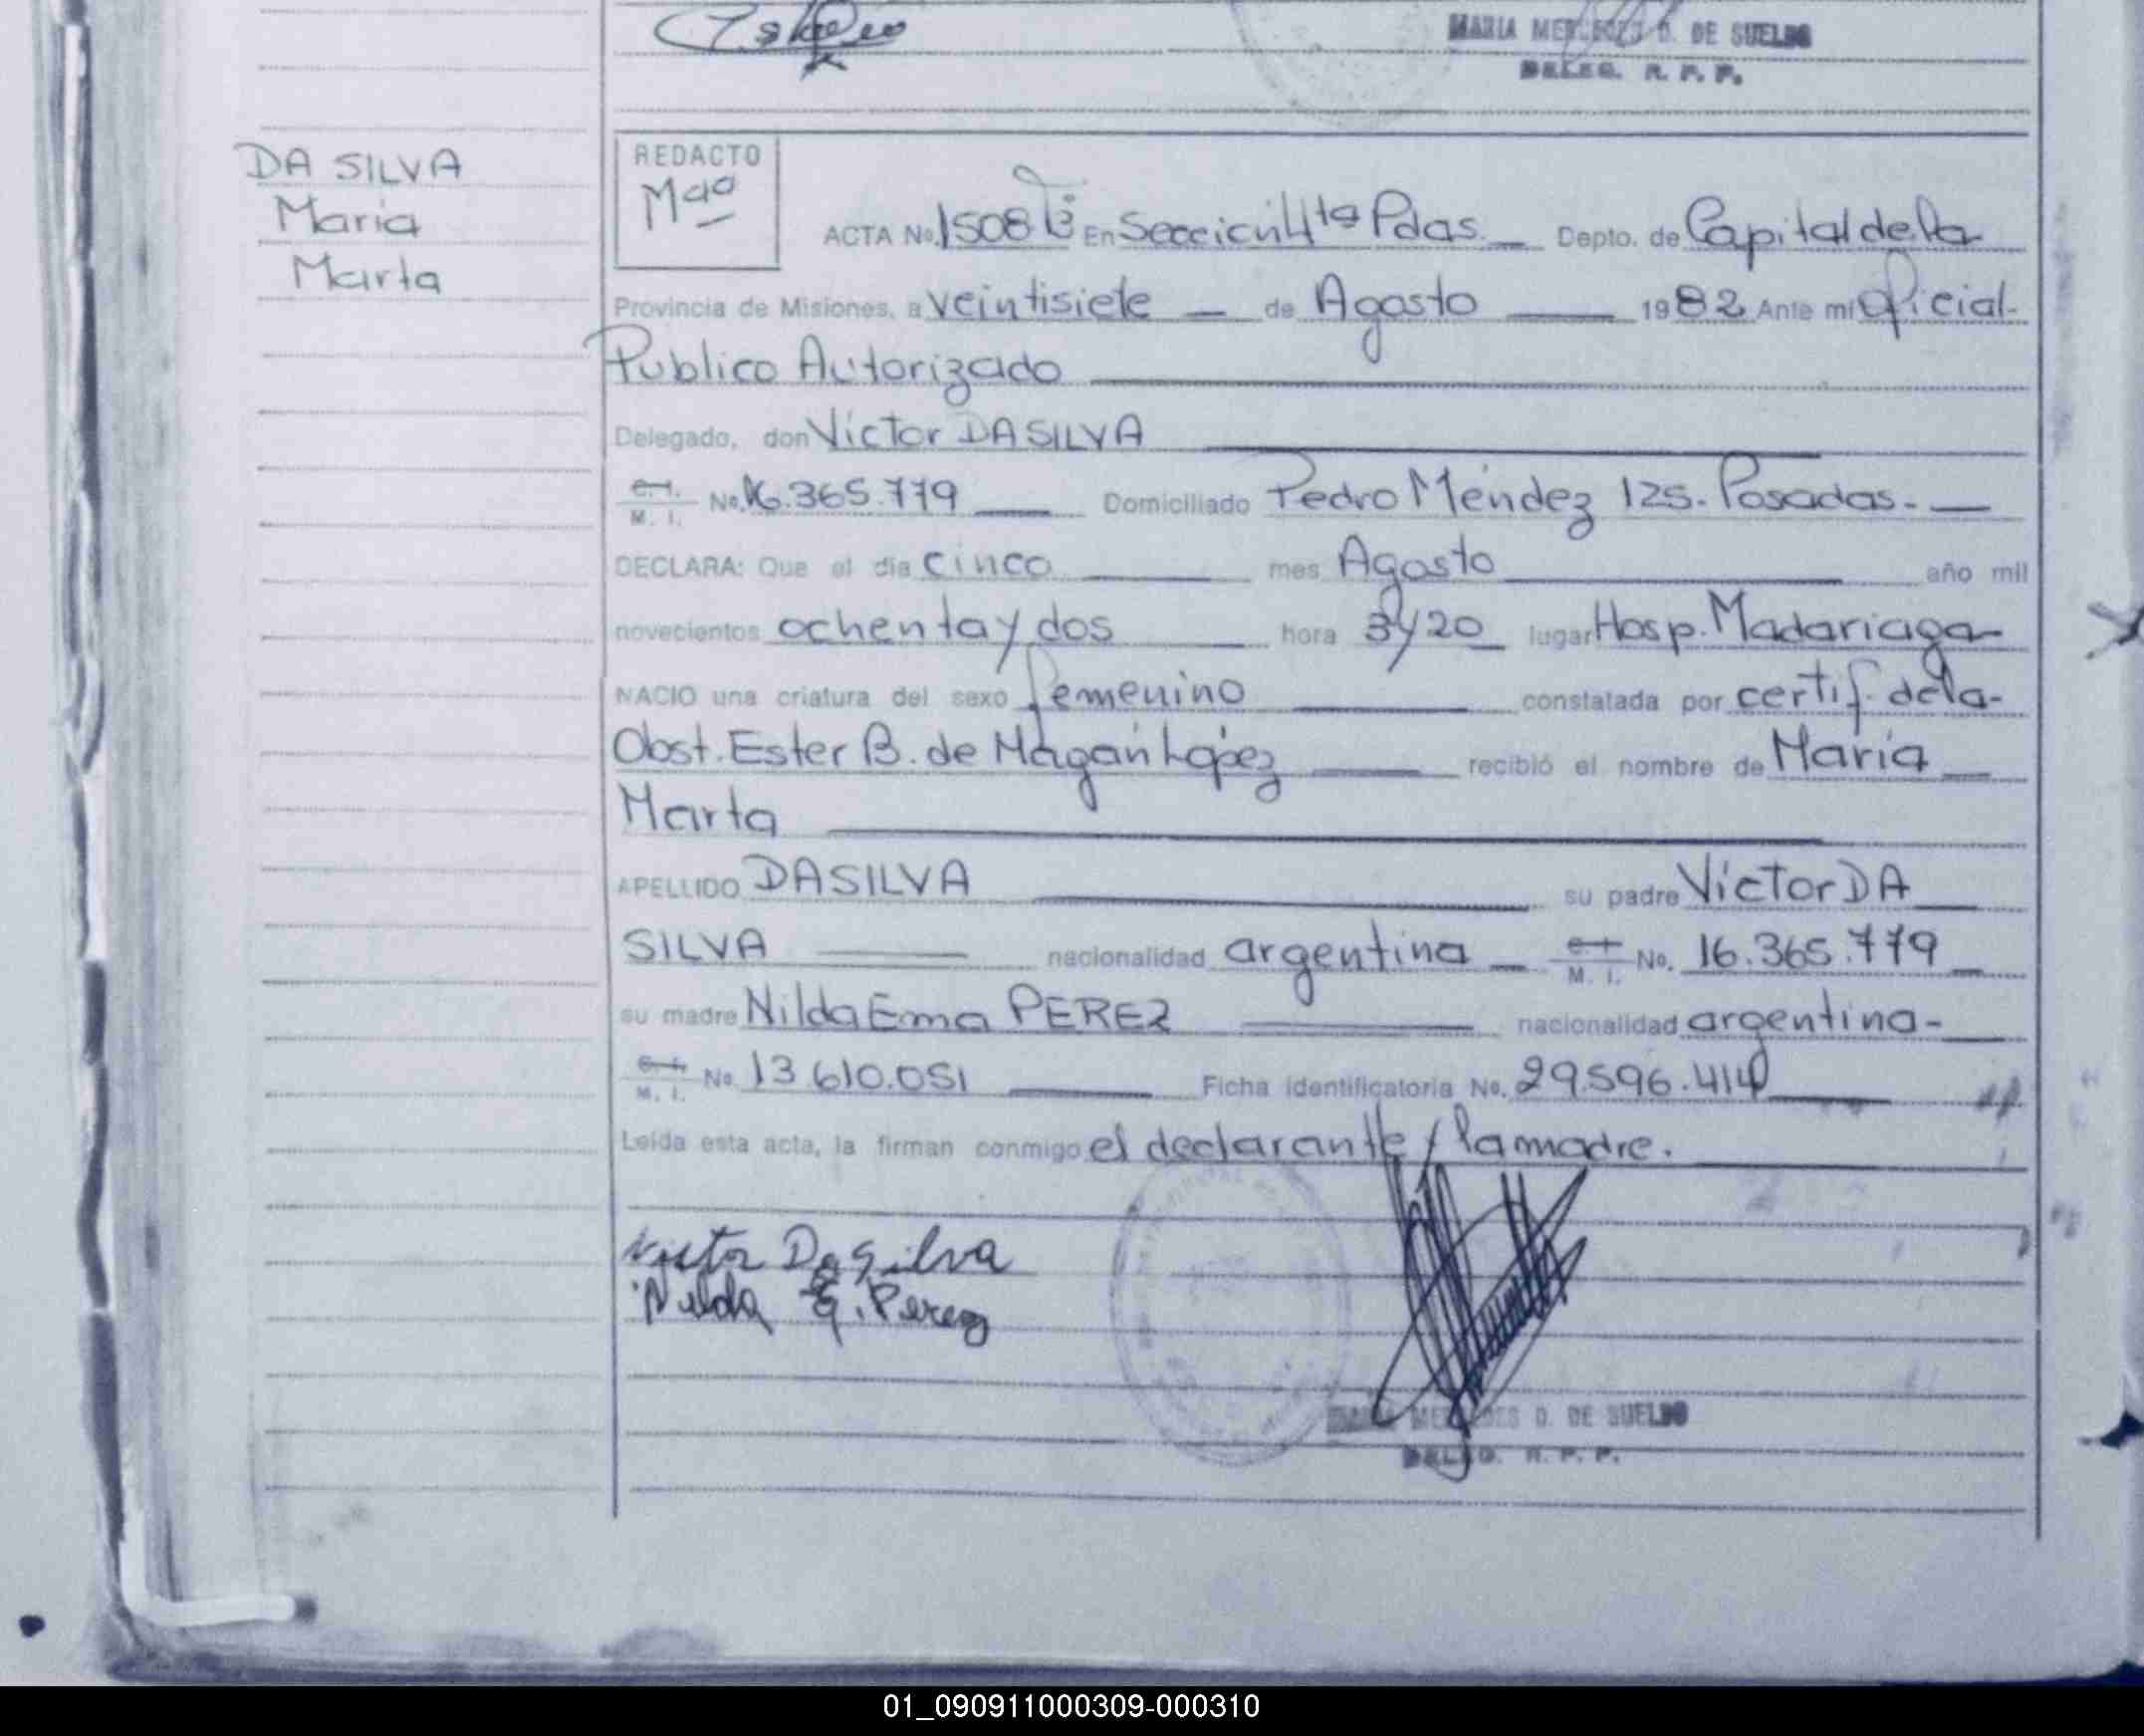 MARIA MERCEDES D. DE SUELDO
DELEG. R. P. P.
DA SILVA
Maria
Marta
REDACTO
Mªª
ACTA No. 1508 Tº En Sección 4ta Pdas. Depto. de Capital de la
Provincia de Misiones, a veintisiete de Agosto 1982 Ante mi Oficial
Publico Autorizado
Delegado, don Víctor DA SILVA
C.I. M. I. No. 16.365.779 Domiciliado Pedro Méndez 125. Posadas.
DECLARA: Que el día cinco mes Agosto año mil
novecientos ochenta y dos hora 3y20 lugar Hosp. Madariaga
NACIO una criatura del sexo femenino constatada por certif. de la
Obst. Ester B. de Magán López recibió el nombre de María
Marta
APELLIDO DA SILVA su padre Víctor DA
SILVA nacionalidad argentina C.I. M. I. No. 16.365.779
su madre Nilda Ema PEREZ nacionalidad argentina
C.I. M. I. No. 13.610.051 Ficha identificatoria No. 29.596.414
Leída esta acta, la firman conmigo el declarante y la madre.
Victor Da Silva
Nilda E. Perez
MARIA MERCEDES D. DE SUELDO
DELEG. R. P. P.
01_090911000309-000310